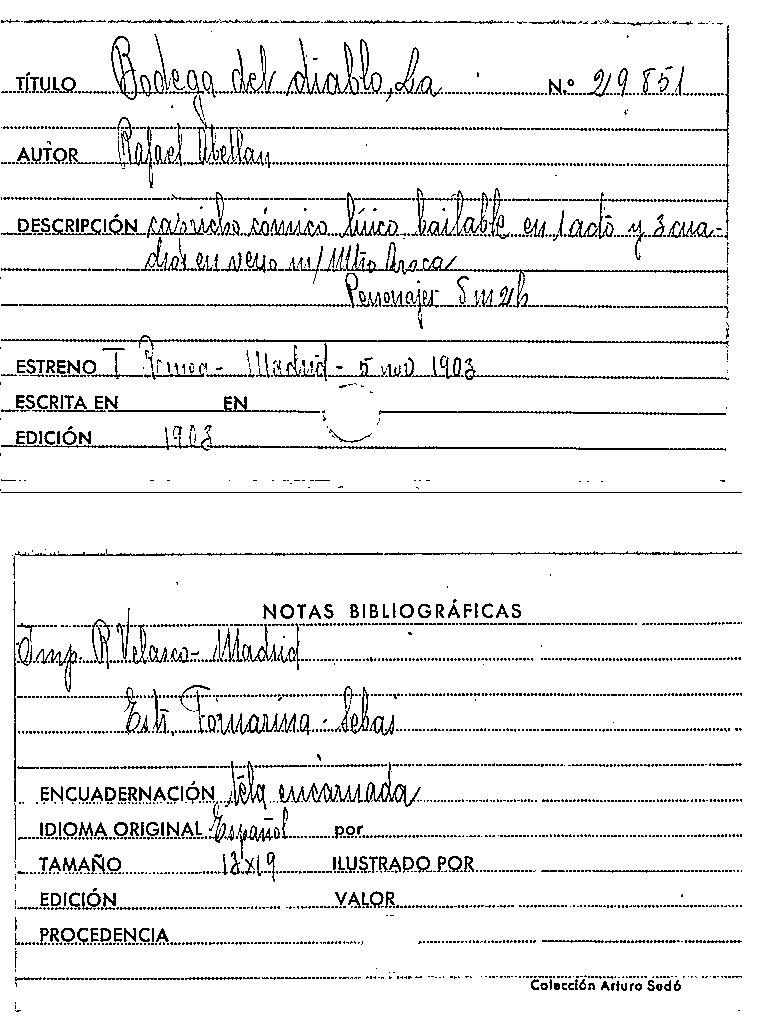 TÍTULO Bodega del diablo, La N.º 219851
AUTOR Rafael Abellan
DESCRIPCIÓN capricho cómico lírico bailable en 1 acto y 3 cua-
dros en verso m/ Mtro Aroca
Personajes 8 m 2 h
ESTRENO T Romea - Madrid - 5 nov 1903
ESCRITA EN EN
EDICIÓN 1903
NOTAS BIBLIOGRÁFICAS
Imp. R Velasco - Madrid
Estr. Fornarina -
ENCUADERNACIÓN tela encarnada
IDIOMA ORIGINAL Español por
TAMAÑO 13x19 ILUSTRADO POR
EDICIÓN VALOR
PROCEDENCIA
Colección Arturo Sedó